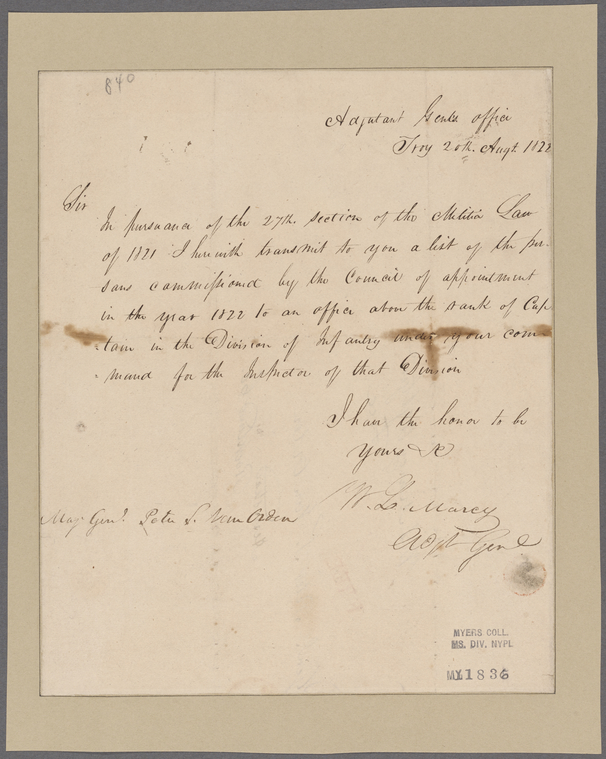 840
Adjutant Genls office
Troy 20th. Augt 1822
Sir
In pursuance of the 27th. section of the Militia Law
of 1821 I herewith transmit to you a list of the per-
sons commissioned by the Council of appointment
in the year 1822 to an office above the rank of Cap-
tain in the Division of Infantry under your com-
mand for the Inspector of that Division
I have the honor to be
yours &c
W. L. Marcy
Adjt Genl
Maj. Genl. Peter S. Van Orden
MYERS COLL.
MS. DIV. NYPL
MY1836